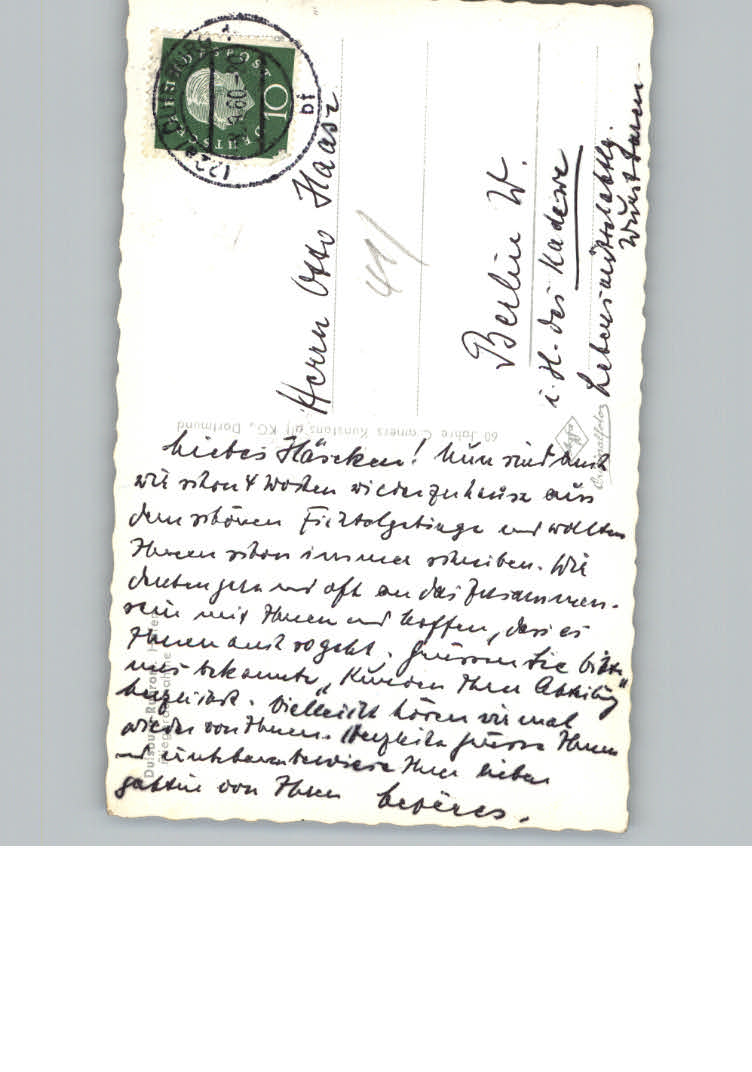 (22a) DUISBURG
bf
DEUTSCHE BUNDESPOST
10
Herrn Otto Haase
41
Berlin W.
i. H. des Kadewe
Lebensmittelabtlg.
Wurstwaren
60 Jahre Cramers Kunstanstalt KG., Dortmund
Agfa
Originalfoto
Duisburg-Ruhrort
Fliegeraufnahme
Liebes Häseken! Nun sind auch
wir schon 4 Wochen wieder zuhause aus
dem schönen Fichtelgebirge und wollten
Ihnen schon immer schreiben. Wir
denken gern und oft an das Zusammen-
sein mit Ihnen und hoffen, dass es
Ihnen auch so geht. Grüssen Sie bitte
uns bekannte „Kunden Ihrer Abteilung"
herzlichst. Vielleicht hören wir mal
wieder von Ihnen. Herzliche Grüsse Ihnen
und unbekannterweise Ihrer lieben
Gattin von Ihren